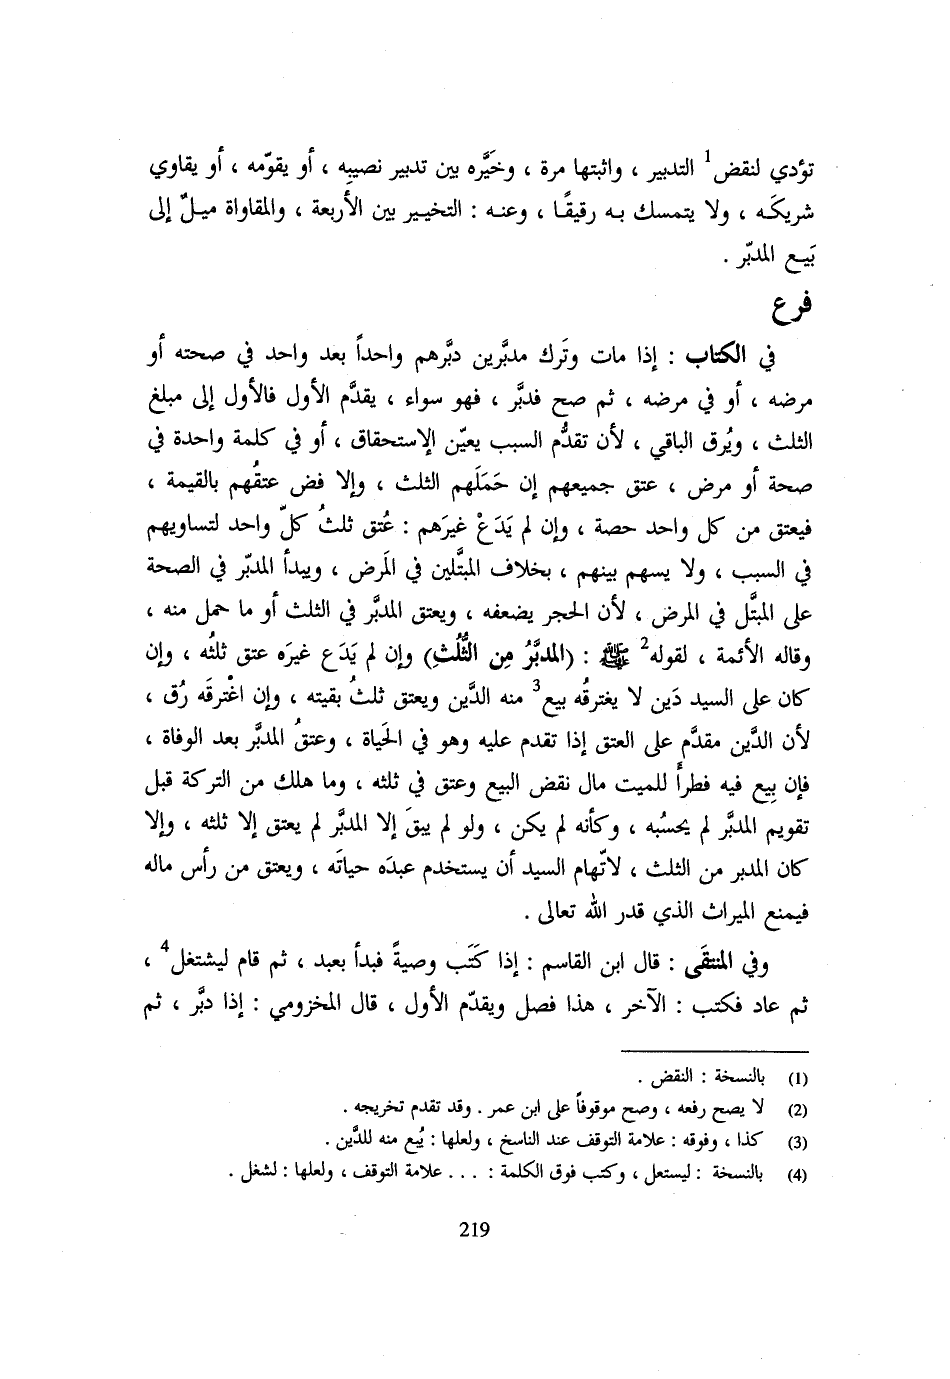 تؤدي لنقض1 التدبير ، واثبتها مرة ، وخَيَّره بين تدبير نصيبِه ، أو يقوّمه ، أو يقاوي
شريكَه ، ولا يتمسك به رقيقًا ، وعنه : التخيير بين الأربعة ، والمقاواة ميلٌ إلى
بَيع المدبّر .
فرع
في الكتاب : إذا مات وتَرك مدبَّرين دبَّرهم واحداً بعد واحد في صحته أو
مرضه ، أو في مرضه ، ثم صح فدبَّر ، فهو سواء ، يقدَّم الأول فالأول إلى مبلغ
الثلث ، ويُرق الباقي ، لأن تقدُّم السبب يعيّن الإستحقاق ، أو في كلمة واحدة في
صحة أو مرض ، عتق جميعهم إن حَمَلَهم الثلث ، وإلا فض عتقُهم بالقيمة ،
فيعتق من كل واحد حصة ، وإن لم يَدَعْ غيرَهم : عُتق ثلثُ كلّ واحد لتساويهم
في السبب ، ولا يسهم بينهم ، بخلاف المبتَّلين في المَرض ، ويبدأ المدبّر في الصحة
على المبتَّل في المرض ، لأن الحجر يضعفه ، ويعتق المدبَّر في الثلث أو ما حمل منه ،
وقاله الأئمة ، لقوله2 ﷺ : (المدبَّرُ مِن الثُّلُث) وإن لم يَدَع غيرَه عتق ثلثُه ، وإن
كان على السيد دَين لا يغترقُه بيع3 منه الدَّين ويعتق ثلثُ بقيته ، وإن اغْترقَه رُق ،
لأن الدَّين مقدَّم على العتق إذا تقدم عليه وهو في الحَياة ، وعتقُ المدبَّر بعد الوفاة ،
فإن بِيع فيه فطرأَ للميت مال نقض البيع وعتق في ثلثه ، وما هلك من التركة قبل
تقويم المدبَّر لم يحسُبه ، وكأنه لم يكن ، ولو لم يبقَ إلا المدبَّر لم يعتق إلا ثلثه ، وإلا
كان المدبر من الثلث ، لاتّهام السيد أن يستخدم عبدَه حياتَه ، ويعتق من رأس ماله
فيمنع الميراث الذي قدر الله تعالى .
وفي المنتقَى : قال ابن القاسم : إذا كَتَب وصيةً فبدأ بعبد ، ثم قام ليشتغل4 ،
ثم عاد فكتب : الآخر ، هذا فصل ويقدّم الأول ، قال المخزومي : إذا دبَّر ، ثم
(1) بالنسخة : النقض .
(2) لا يصح رفعه ، وصح موقوفاً على ابن عمر . وقد تقدم تخريجه .
(3) كذا ، وفوقه : علامة التوقف عند الناسخ ، ولعلها : يُبع منه للدَّين .
(4) بالنسخة : ليستعل ، وكتب فوق الكلمة : . . . علامة التوقف ، ولعلها : لشغل .
219